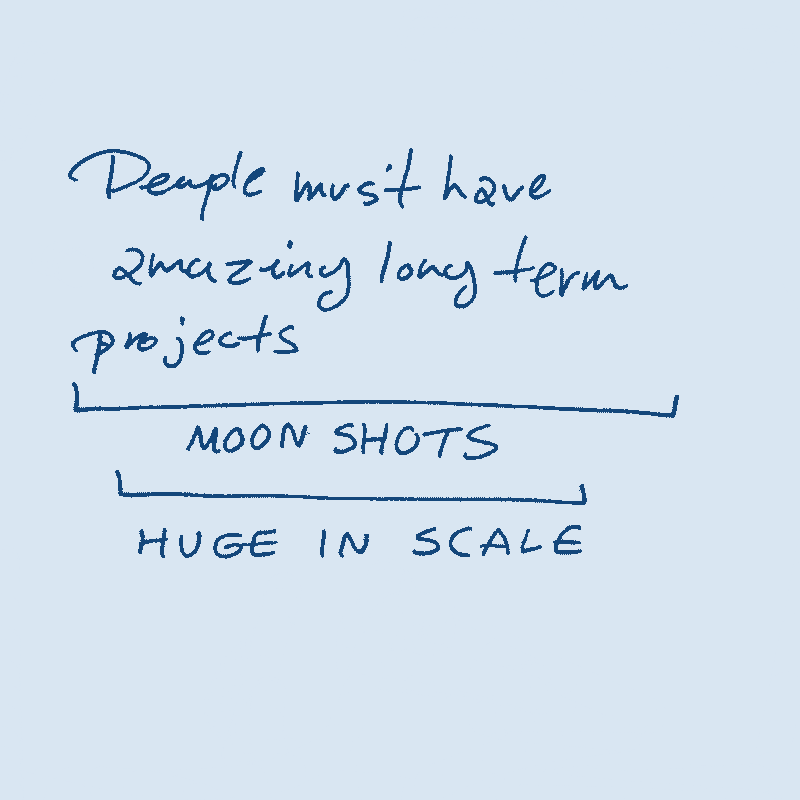 People must have
amazing long term
projects
MOON SHOTS
HUGE IN SCALE